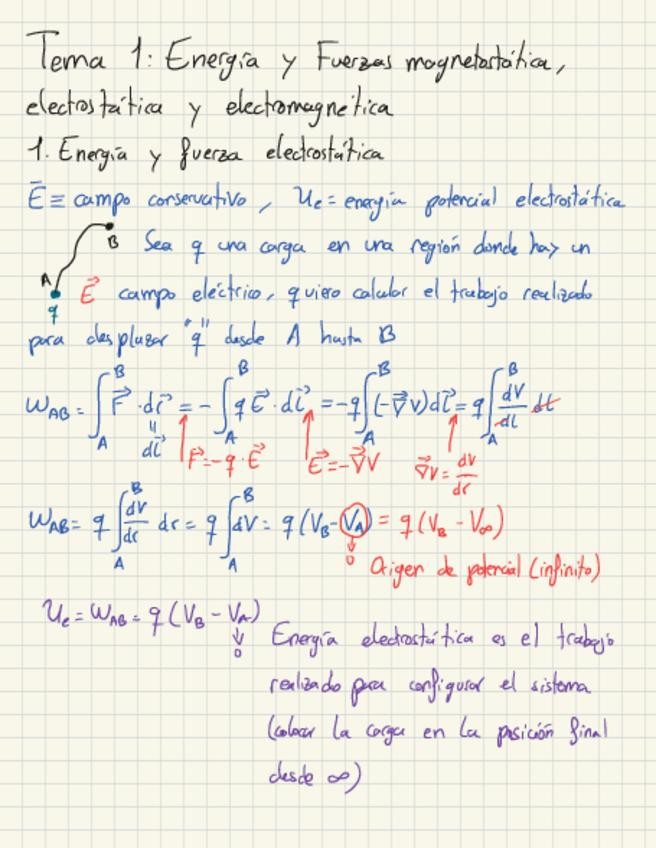 Tema 1: Energía y Fuerzas magnetostática,
electrostática y electromagnética
1. Energía y fuerza electrostática
E⃗ ≡ campo conservativo, Ue = energía potencial electrostática
B
Sea q una carga en una región donde hay un
A
q
E⃗ campo eléctrico, quiero calcular el trabajo realizado
para desplazar "q" desde A hasta B
W_AB = ∫_A^B F⃗ · dr⃗ = - ∫_A^B q E⃗ · dl⃗ = -q ∫_A^B (-∇⃗v) dl⃗ = q ∫_A^B dV/dl dl
dl⃗
F⃗ = -q · E⃗
E⃗ = -∇⃗V
∇⃗V = dV/dr
W_AB = q ∫_A^B dV/dr dr = q ∫_A^B dV = q (V_B - V_A) = q (V_B - V_∞)
0 Origen de potencial (infinito)
Ue = W_AB = q (V_B - V_A)
0
Energía electrostática es el trabajo
realizado para configurar el sistema
(colocar la carga en la posición final
desde ∞)